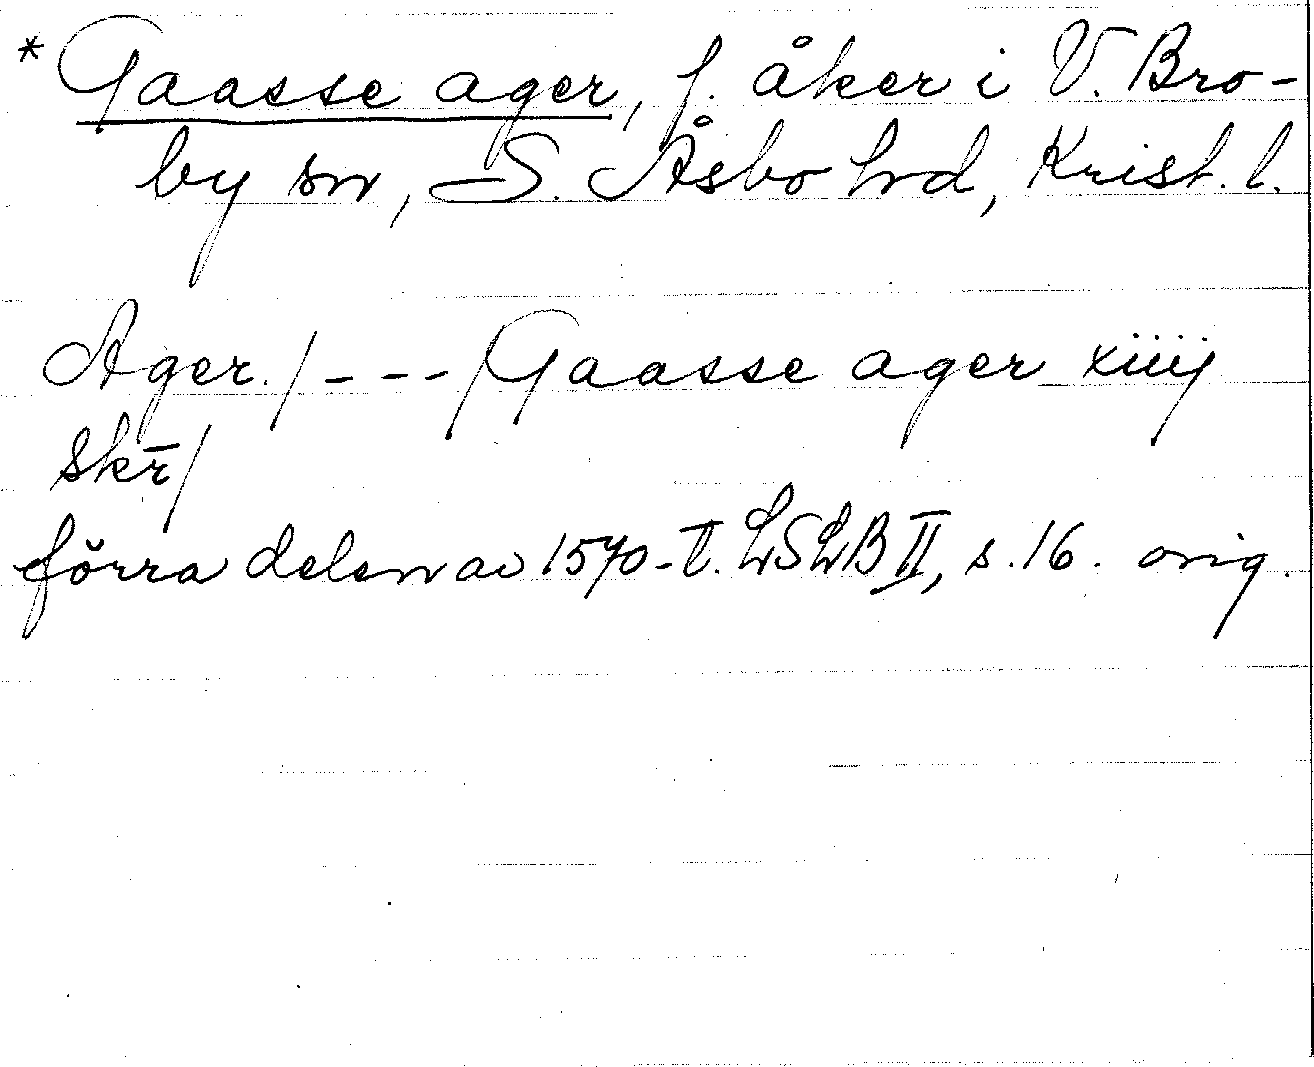 * Gaasse ager, f. åker i V. Bro-
by sn, S. Åsbo hd, Krist. l.
Ager. /---/ Gaasse ager xiiij
skr̄/
förra delen av 1570-t. LSLB II, s. 16. orig.